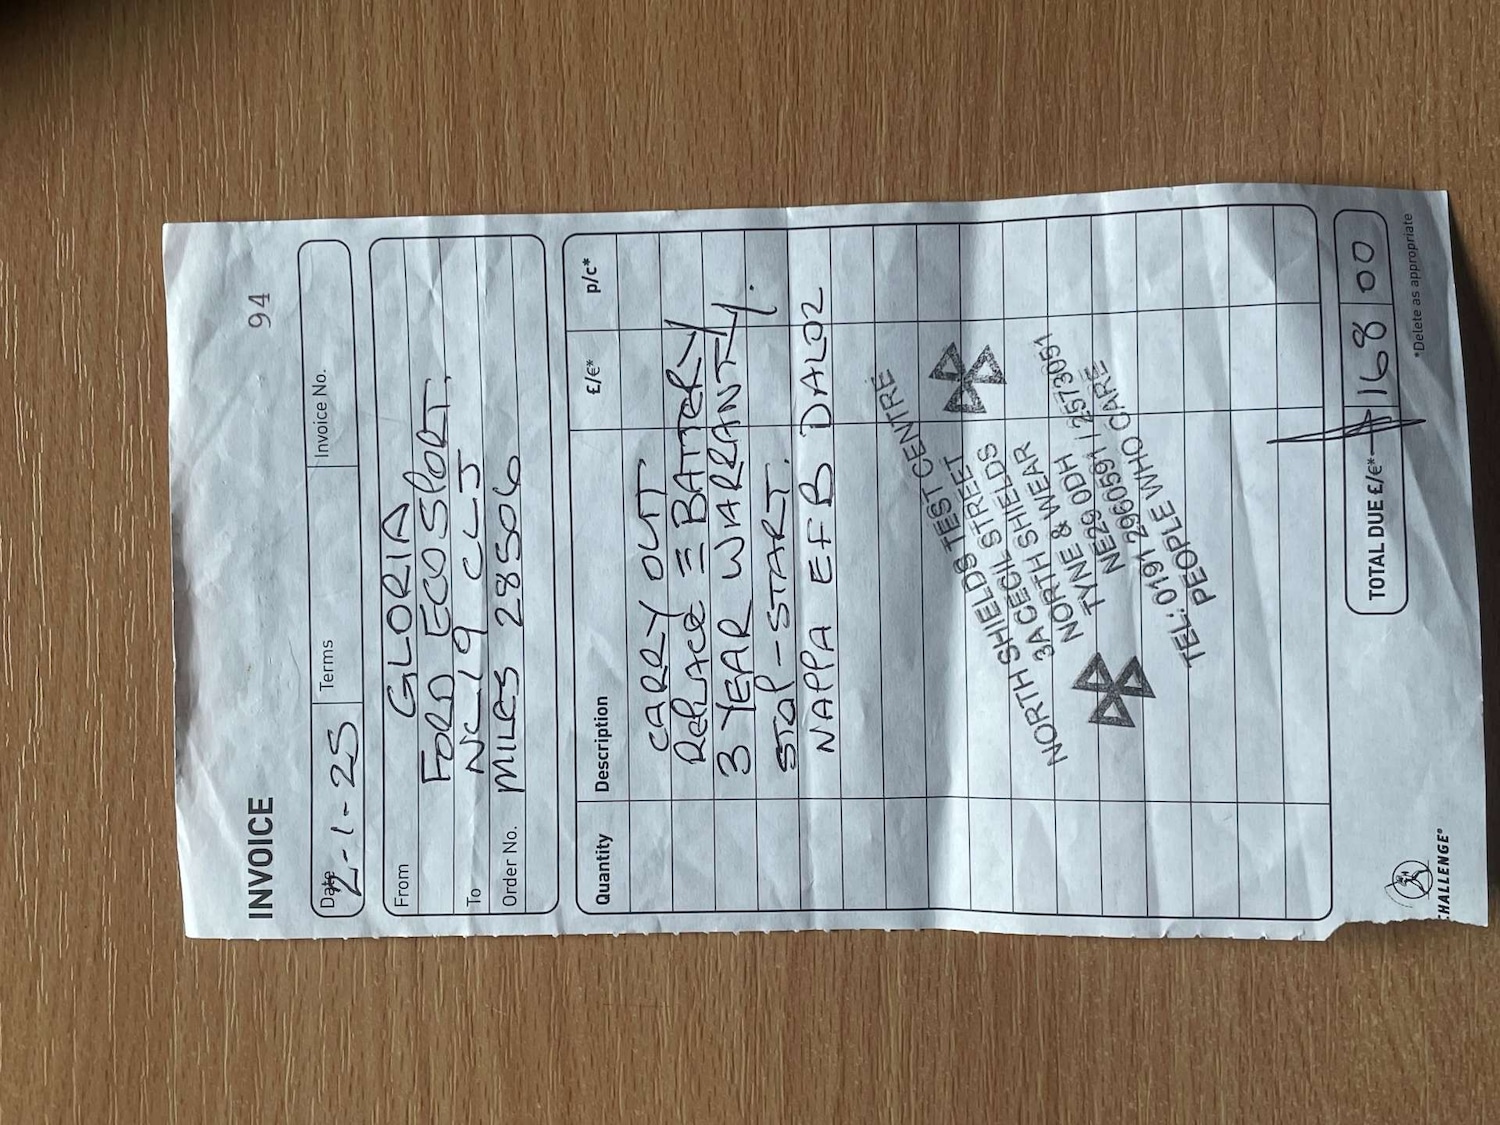 INVOICE 94
Date 2-1-25 Terms Invoice No.
From GLORIA
FORD ECOSPORT.
To NC19 CLJ
Order No. MILES 28506
Quantity Description £/€* p/c*
CARRY OUT
REPLACE = BATTERY
3 YEAR WARRANTY
STOP-START.
NAPPA EFB DAL02
NORTH SHIELDS TEST CENTRE
3A CECIL STREET
NORTH SHIELDS
TYNE & WEAR
NE29 0DH
TEL: 0191 2960591 / 2573051
PEOPLE WHO CARE
TOTAL DUE £/€* 168 00
*Delete as appropriate
CHALLENGE®